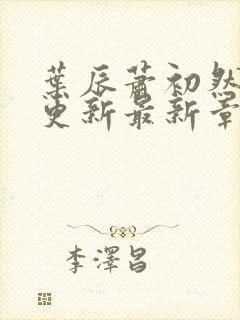 葉辰蕭初然
更新最新章
李澤昌